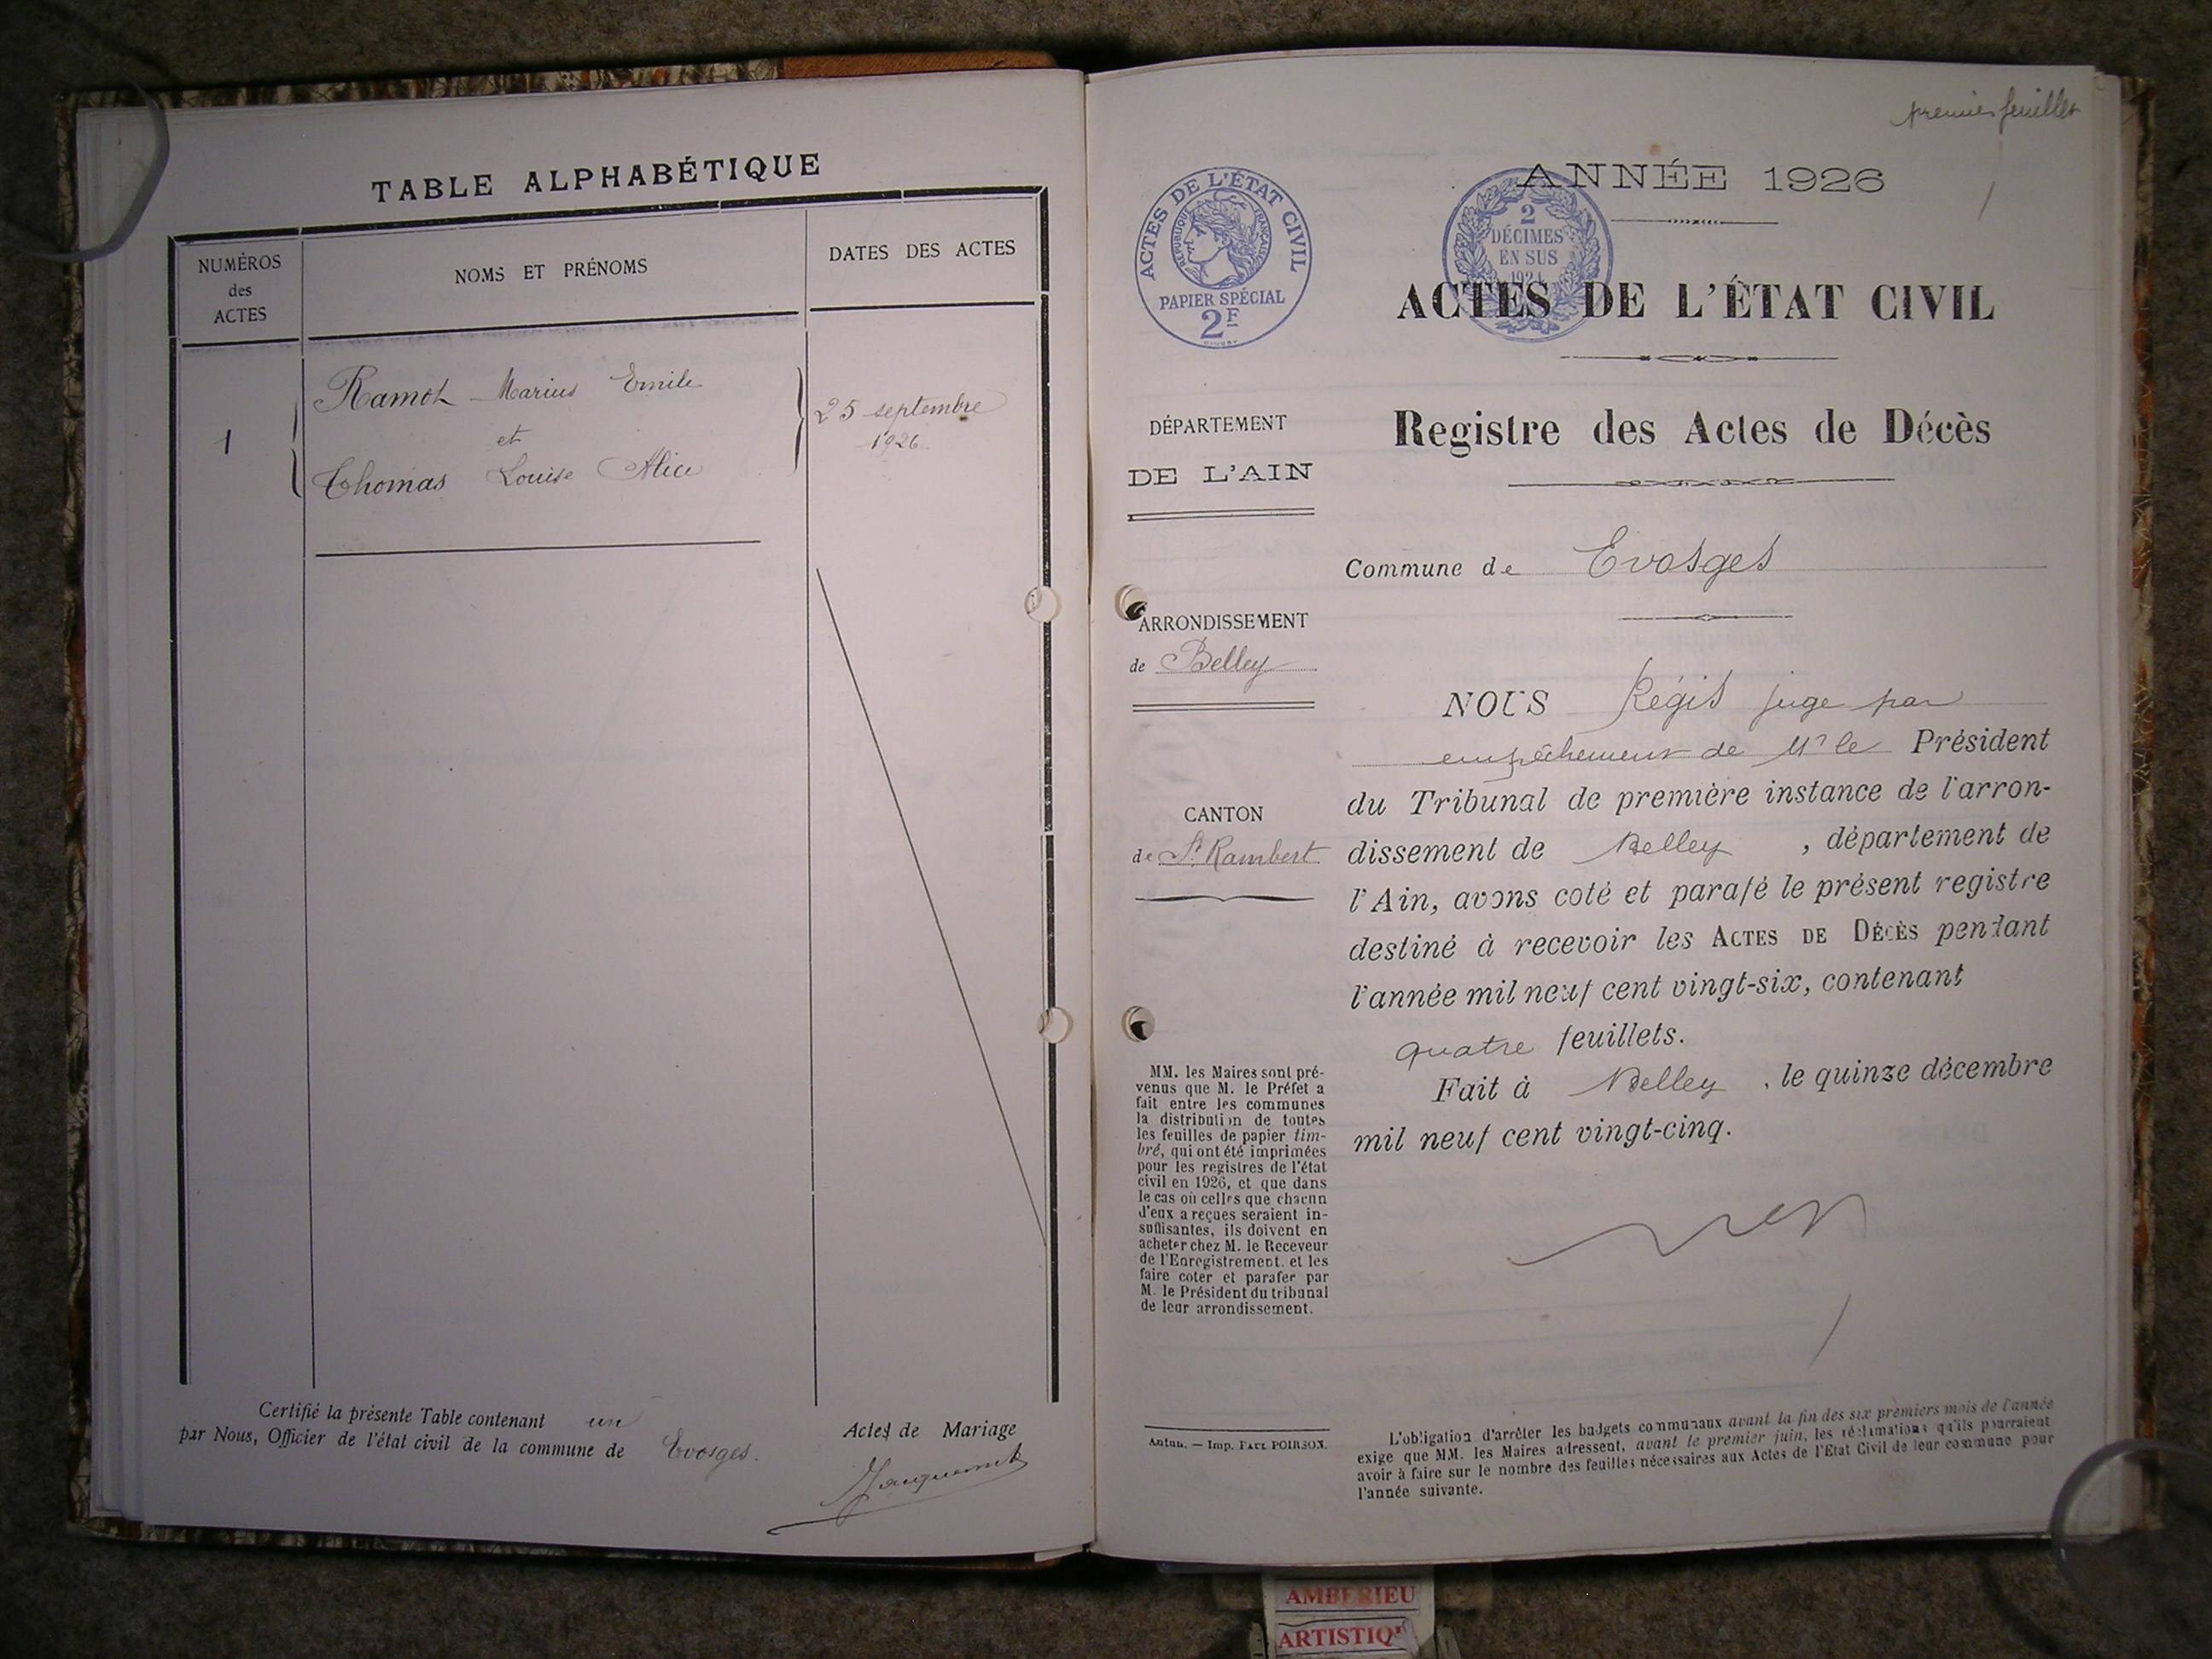 TABLE ALPHABÉTIQUE
NUMÉROS
des
ACTES
NOMS ET PRÉNOMS
DATES DES ACTES
1
Ramel Marius Emile
et
Thomas Louise Alice
25 septembre
1926
Certifié la présente Table contenant un Actes de Mariage
par Nous, Officier de l'état civil de la commune de Evosges.
premier feuillet
ACTES DE L'ÉTAT CIVIL
RÉPUBLIQUE FRANÇAISE
PAPIER SPÉCIAL
2F
2
DÉCIMES
EN SUS
1924
ANNÉE 1926
ACTES DE L'ÉTAT CIVIL
Registre des Actes de Décès
DÉPARTEMENT
DE L'AIN
Commune de Evosges
ARRONDISSEMENT
de Belley
CANTON
de St Rambert
NOUS Régis juge par
empêchement de Mr le Président
du Tribunal de première instance de l'arron-
dissement de Belley, département de
l'Ain, avons coté et parafé le présent registre
destiné à recevoir les ACTES DE DÉCÈS pendant
l'année mil neuf cent vingt-six, contenant
quatre feuillets.
Fait à Belley, le quinze décembre
mil neuf cent vingt-cinq.
MM. les Maires sont pré-
venus que M. le Préfet a
fait entre les communes
la distribution de toutes
les feuilles de papier tim-
bré, qui ont été imprimées
pour les registres de l'état
civil en 1926, et que dans
le cas où celles que chacun
d'eux a reçues seraient in-
suffisantes, ils doivent en
acheter chez M. le Receveur
de l'Enregistrement. et les
faire coter et parafer par
M. le Président du tribunal
de leur arrondissement.
Autun. — Imp. PAUL POIRSON.
L'obligation d'arrêter les budgets communaux avant la fin des six premiers mois de l'année
exige que MM. les Maires adressent, avant le premier juin, les réclamations qu'ils pourraient
avoir à faire sur le nombre des feuilles nécessaires aux Actes de l'Etat Civil de leur commune pour
l'année suivante.
AMBERIEU
ARTISTIQ